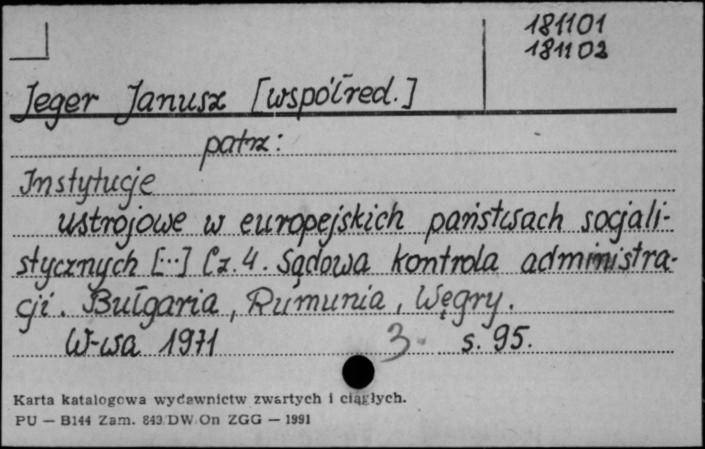 181101
181102
Jeger Janusz [współred.]
patrz:
Instytucje
ustrojowe w europejskich państwach socjali-
stycznych [...] Cz. 4. Sądowa kontrola administra-
cji. Bułgaria, Rumunia, Węgry.
W-wa 1971 3. s. 95.
Karta katalogowa wydawnictw zwartych i ciągłych.
PU — B144 Zam. 843/DW/On ZGG — 1991